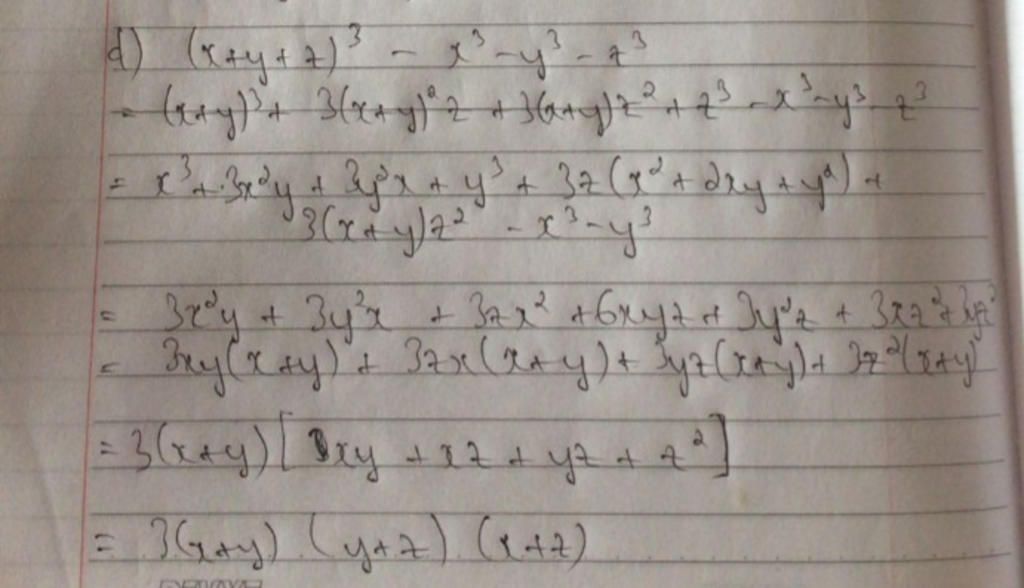 d) (x+y+z)³ - x³-y³-z³
= (x+y)³+ 3(x+y)²z +3(x+y)z²+z³-x³-y³-z³
= x³+3x²y+3y²x+y³+3z(x²+2xy+y²)+
3(x+y)z² -x³-y³
= 3x²y + 3y²x + 3zx² +6xyz+3y²z + 3xz²+3yz²
= 3xy(x+y)+ 3zx(x+y)+3yz(x+y)+3z²(x+y)
=3(x+y)[xy +xz+yz+z²]
= 3(x+y) (y+z) (x+z)